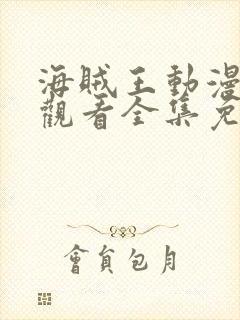 海賊王動漫
觀看全集免
會員包月